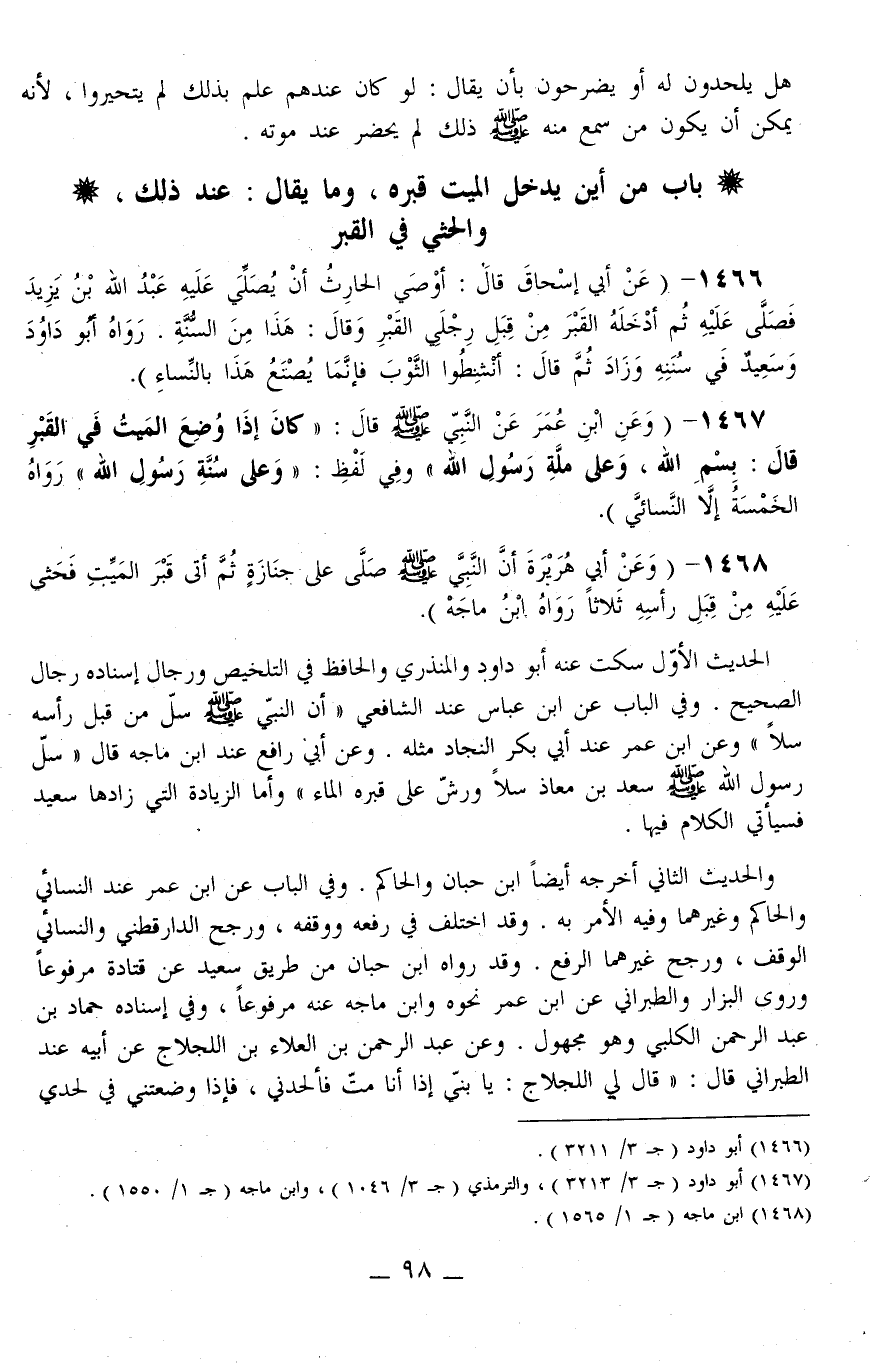 هل يلحدون له أو يضرحون بأن يقال : لو كان عندهم علم بذلك لم يتحيروا ، لأنه
يمكن أن يكون من سمع منه ﷺ ذلك لم يحضر عند موته .
باب من أين يدخل الميت قبره ، وما يقال : عند ذلك ،
والحثي في القبر
١٤٦٦- ( عَنْ أبي إسْحاقَ قالَ : أوْصَي الحارِثُ أنْ يُصَلِّيَ عَلَيهِ عَبْدُ الله بْنُ يَزِيدَ
فَصَلَّى عَلَيْهِ ثُم أدْخَلَهُ القَبْرَ مِنْ قِبَلِ رِجْلَي القَبْرِ وَقالَ : هَذَا مِنَ السُّنَّةِ . رَوَاهُ أبُو دَاوُدَ
وَسَعِيدٌ في سُنَنِهِ وَزَادَ ثُمَّ قالَ : أنْشِطُوا الثَّوْبَ فإنَّمَا يُصْنَعُ هَذَا بالنِّساءِ ).
١٤٦٧- ( وَعَنِ ابْنِ عُمَرَ عَنْ النَّبِيّ ﷺ قالَ : « كانَ إذَا وُضِعَ المَيتُ في القَبْرِ
قالَ : بِسْمِ الله ، وَعلى ملَّةِ رَسُولِ الله » وفِي لَفْظِ : « وَعلى سُنَّةِ رَسُولِ الله » رَوَاهُ
الخَمْسَةُ إلَّا النَّسائيَّ ).
١٤٦٨- ( وَعَنْ أبي هُرَيْرَةَ أنَّ النَّبِيَّ ﷺ صَلَّى على جنازَةٍ ثُمَّ أتى قَبْرَ المَيِّتِ فَحَثي
عَلَيْهِ مِنْ قِبَلِ رأسِهِ ثَلاثاً رَوَاهُ ابْنُ ماجَهْ ).
الحديث الأوّل سكت عنه أبو داود والمنذري والحافظ في التلخيص ورجال إسناده رجال
الصحيح . وفي الباب عن ابن عباس عند الشافعي « أن النبيّ ﷺ سلّ من قبل رأسه
سلاً » وعن ابن عمر عند أبي بكر النجاد مثله . وعن أبي رافع عند ابن ماجه قال « سلّ
رسول الله ﷺ سعد بن معاذ سلاً ورشّ على قبره الماء » وأما الزيادة التي زادها سعيد
فسيأتي الكلام فيها .
والحديث الثاني أخرجه أيضاً ابن حبان والحاكم . وفي الباب عن ابن عمر عند النسائي
والحاكم وغيرهما وفيه الأمر به . وقد اختلف في رفعه ووقفه ، ورجح الدارقطني والنسائي
الوقف ، ورجح غيرهما الرفع . وقد رواه ابن حبان من طريق سعيد عن قتادة مرفوعاً
وروى البزار والطبراني عن ابن عمر نحوه وابن ماجه عنه مرفوعاً ، وفي إسناده حماد بن
عبد الرحمن الكلبي وهو مجهول . وعن عبد الرحمن بن العلاء بن اللجلاج عن أبيه عند
الطبراني قال : « قال لي اللجلاج : يا بنيّ إذا أنا متّ فألحدني ، فإذا وضعتني في لحدي
(١٤٦٦) أبو داود ( جـ ٣/ ٣٢١١ ) .
(١٤٦٧) أبو داود ( جـ ٣/ ٣٢١٣ ) ، والترمذي ( جـ ٣/ ١٠٤٦ ) ، وابن ماجه ( جـ ١/ ١٥٥٠ ) .
(١٤٦٨) ابن ماجه ( جـ ١/ ١٥٦٥ ) .
— ٩٨ —